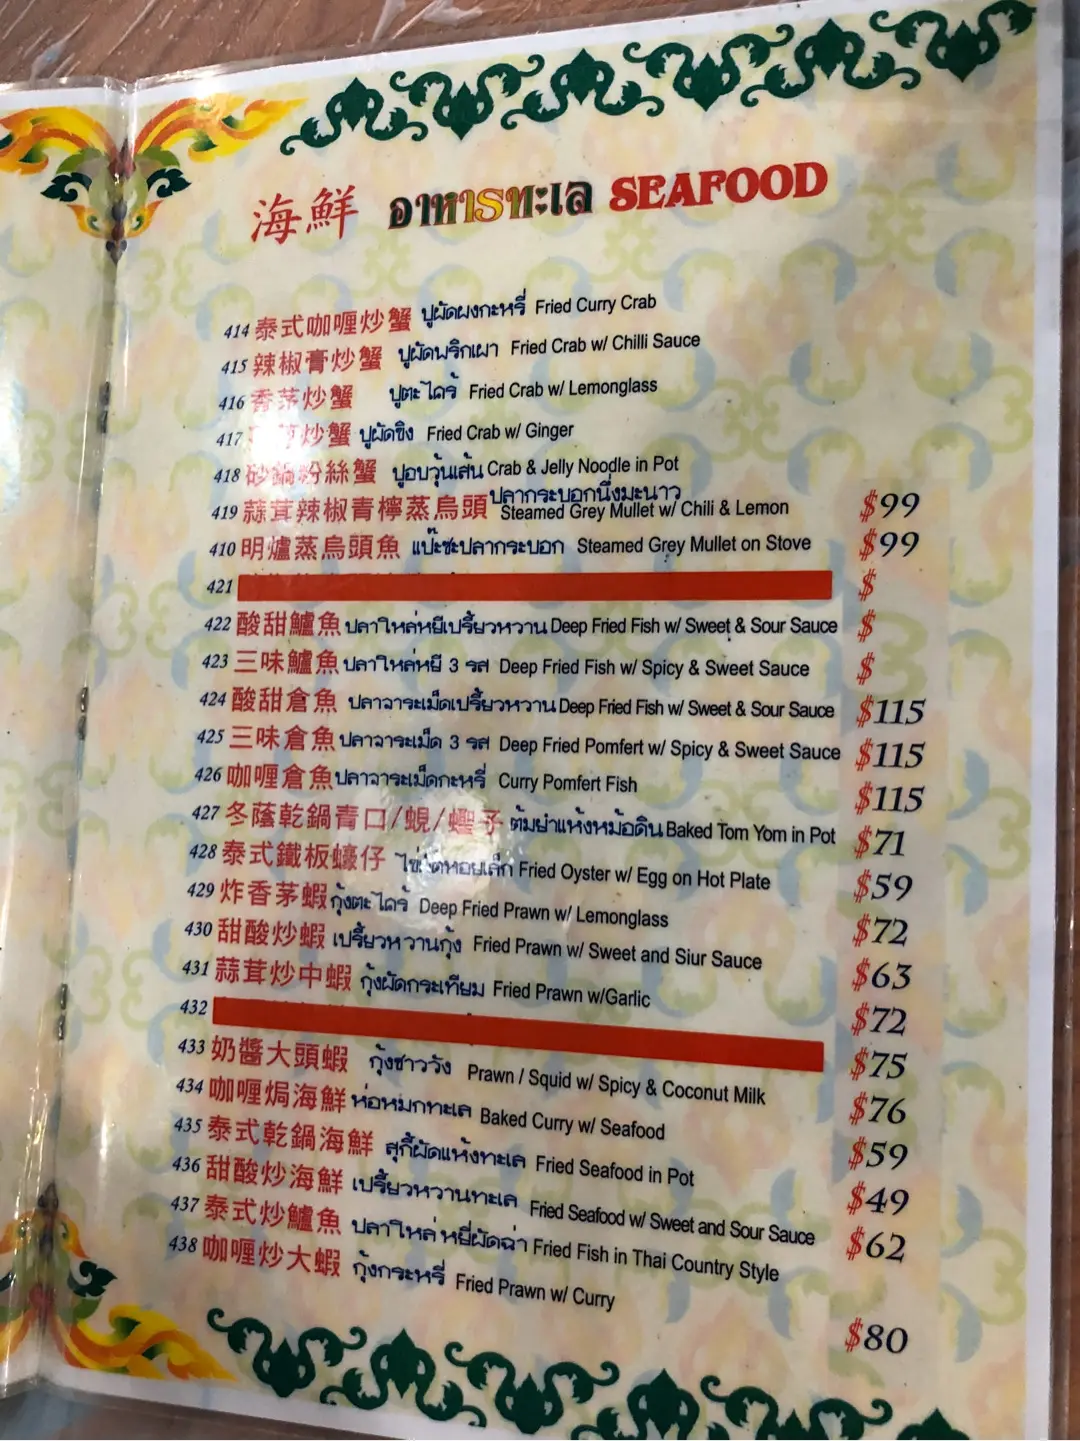 海鮮 อาหารทะเล SEAFOOD
414 泰式咖喱炒蟹 ปูผัดผงกะหรี่ Fried Curry Crab
415 辣椒膏炒蟹 ปูผัดพริกเผา Fried Crab w/ Chilli Sauce
416 香茅炒蟹 ปูตะไคร้ Fried Crab w/ Lemonglass
417 炒蟹 ปูผัดขิง Fried Crab w/ Ginger
418 砂鍋粉絲蟹 ปูอบวุ้นเส้น Crab & Jelly Noodle in Pot
419 蒜茸辣椒青檸蒸烏頭 ปลากระบอกนึ่งมะนาว Steamed Grey Mullet w/ Chili & Lemon $99
410 明爐蒸烏頭魚 แป๊ะซะปลากระบอก Steamed Grey Mullet on Stove $99
421 $
422 酸甜鱸魚 ปลาใหล่หยีเปรี้ยวหวาน Deep Fried Fish w/ Sweet & Sour Sauce $
423 三味鱸魚 ปลาใหล่หยี 3 รส Deep Fried Fish w/ Spicy & Sweet Sauce $
424 酸甜倉魚 ปลาจาระเม็ดเปรี้ยวหวาน Deep Fried Fish w/ Sweet & Sour Sauce $115
425 三味倉魚 ปลาจาระเม็ด 3 รส Deep Fried Pomfert w/ Spicy & Sweet Sauce $115
426 咖喱倉魚 ปลาจาระเม็ดกะหรี่ Curry Pomfert Fish $115
427 冬蔭乾鍋青口/蜆/蟶子 ต้มยำแห้งหม้อดิน Baked Tom Yom in Pot $71
428 泰式鐵板蠔仔 ไข่ผัดหอยเล็ก Fried Oyster w/ Egg on Hot Plate $59
429 炸香茅蝦 กุ้งตะไคร้ Deep Fried Prawn w/ Lemonglass $72
430 甜酸炒蝦 เปรี้ยวหวานกุ้ง Fried Prawn w/ Sweet and Siur Sauce $63
431 蒜茸炒中蝦 กุ้งผัดกระเทียม Fried Prawn w/Garlic $72
432 $75
433 奶醬大頭蝦 กุ้งชาววัง Prawn / Squid w/ Spicy & Coconut Milk $76
434 咖喱焗海鮮 ห่อหมกทะเล Baked Curry w/ Seafood $59
435 泰式乾鍋海鮮 สุกี้ผัดแห้งทะเล Fried Seafood in Pot $49
436 甜酸炒海鮮 เปรี้ยวหวานทะเล Fried Seafood w/ Sweet and Sour Sauce $62
437 泰式炒鱸魚 ปลาใหล่หยี่ผัดฉ่า Fried Fish in Thai Country Style
438 咖喱炒大蝦 กุ้งกระหรี่ Fried Prawn w/ Curry $80